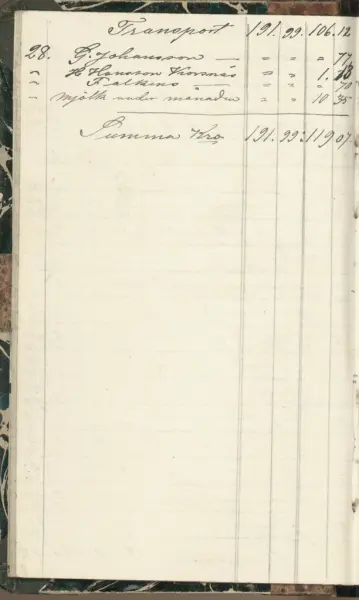 Transport 191. 99. 106. 12
28. G. Johansson — " " " 77
" H Hansson Korsnäs " " 1. 13
" Falkens — " " " 70
" Mjölk under månaden " " 10 35
Summa Kro 191. 99. 119 07